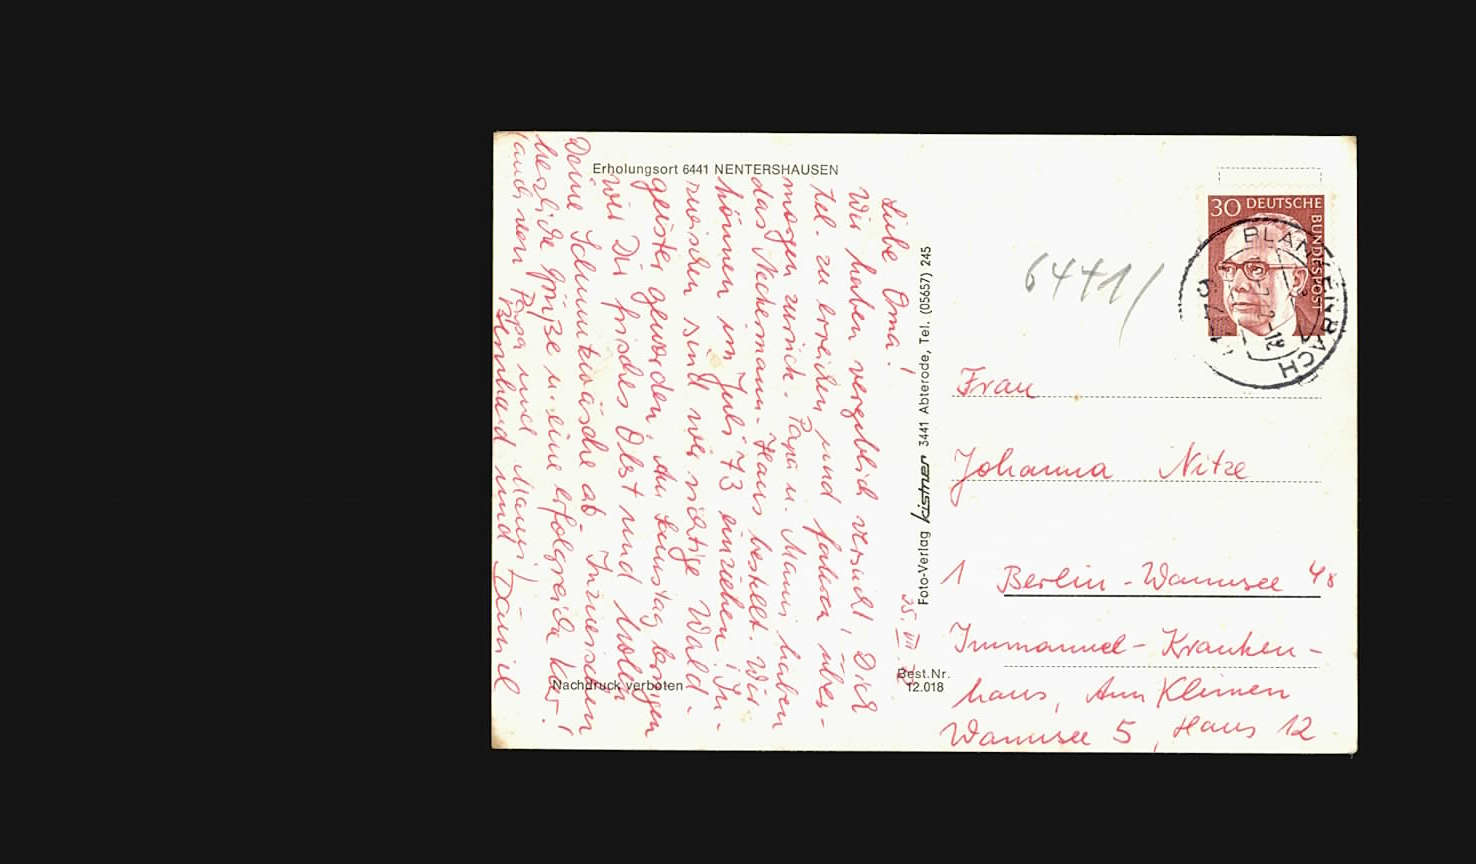 Erholungsort 6441 NENTERSHAUSEN
25. VII. 72
Liebe Oma!
Wir haben vergeblich versucht, Dich
tel. zu erreichen, und fahren über-
morgen zurück. Papa u. Mami haben
das Neckermann-Haus bestellt. Wir
können im Juli '73 einziehen. In-
zwischen sind wir richtige Wald-
geister geworden. Am Samstag bringen
wir Dir frisches Obst und holen
Deine Schmutzwäsche ab. Inzwischen
herzliche Grüße u. eine erfolgreiche Kur!
(auch von Papa und Mami)
Bernhard und Daniel
Nachdruck verboten
Foto-Verlag kistner 3441 Abterode, Tel. (05657) 245
Best.Nr.
12.018
30 DEUTSCHE BUNDESPOST
6441/
Frau
Johanna Nitze
1 Berlin-Wannsee
Immanuel-Kranken-
haus, Am Kleinen
Wannsee 5, Haus 12